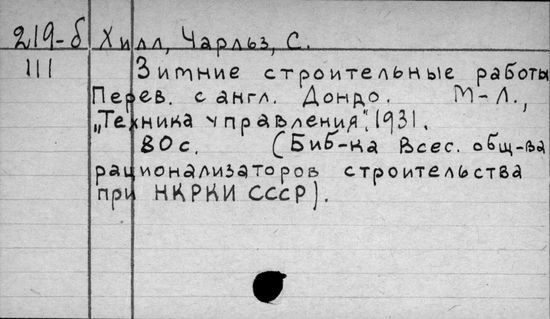 219-б Хилл, Чарльз, С.
III Зимние строительные работы
Перев. с англ. Дондо. М-Л.,
„Техника управления", 1931.
80 с. (Биб-ка Всес. общ-ва
рационализаторов строительства
при НКРКИ СССР).